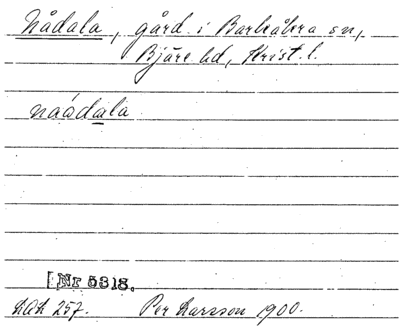 Nådala, gård i Barkåkra sn,
Bjäre hd, Krist. l.
naódala
[Nr 5318.
KAK 257. Per Larsson 1900.